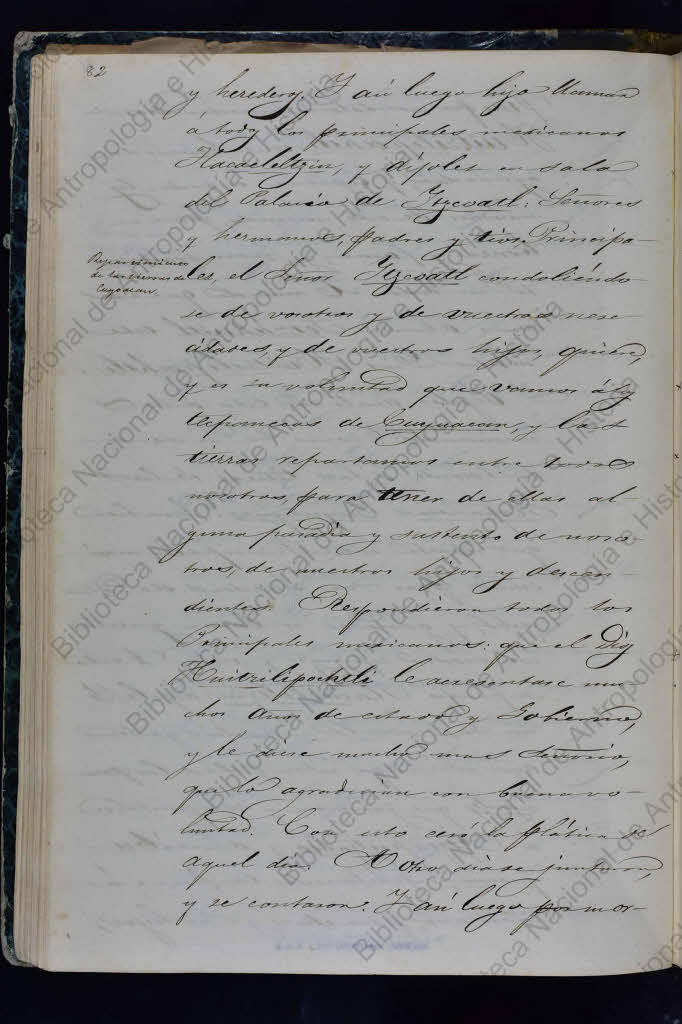 82
y herederos. Y así luego hizo llamar
á todos los principales mexicanos
Tlacaeleltzin, y díjoles en sala
del Palacio de Itzcoatl: Señores
y hermanos, padres y tios. Principa-
Repartimiento
de las tierras de
Cuyoacan.
les, el Señor Itzcoatl condoliéndo-
se de vosotros y de vuestras nece-
sidades, y de vuestros hijos, quiere,
y es su voluntad que vamos á los
tepanecas de Cuyuacan, y las
tierras repartamos entre todos
nosotros, para tener de ellas al
guna pasadia y sustento de noso-
tros, de nuestros hijos y descen-
dientes. Respondieron todos los
Principales mexicanos: que el Dios
Huitzilipochtli le acresentase mu
chos años de estado y Gobierno,
y le diese mucho mas Señorio,
que lo agradecian con buena vo-
luntad. Con esto cesó la plática de
aquel dia. A otro dia se juntaron,
y se contaron. Y así luego por mor-
Biblioteca Nacional de Antropología e Historia